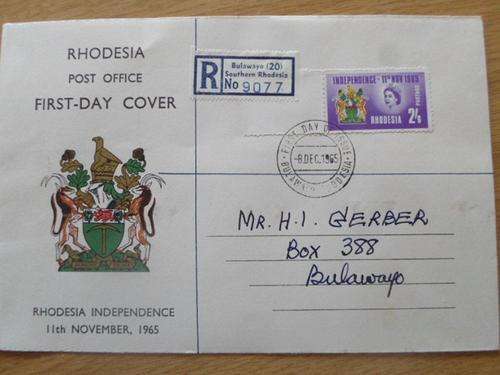 RHODESIA
POST OFFICE
FIRST-DAY COVER
R
Bulawayo (20)
Southern Rhodesia
No 9077
INDEPENDENCE - 11TH NOV 1965
POSTAGE
RHODESIA
2/6
FIRST DAY OF ISSUE
-8.DEC.1965
BULAWAYO
MR. H.I. GERBER
BOX 388
Bulawayo
RHODESIA INDEPENDENCE
11th NOVEMBER, 1965